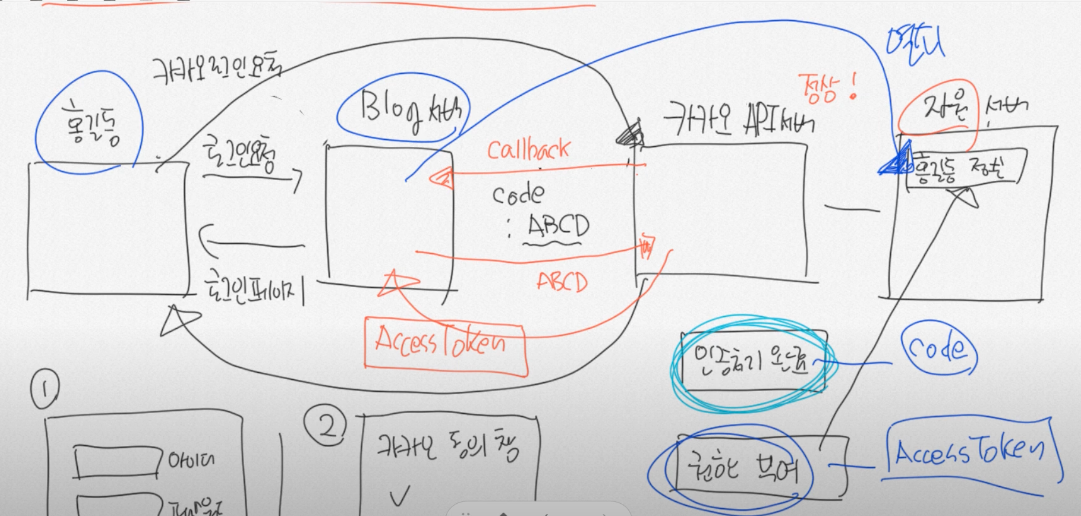 카카오로그인요청
홍길동
로그인요청
로그인페이지
Blog 서버
Callback
code
: ABCD
ABCD
AccessToken
카카오 API서버
정상!
자원 서버
홍길동 정보
인증처리 완료
code
권한 부여
AccessToken
①
아이디
②
카카오 동의창